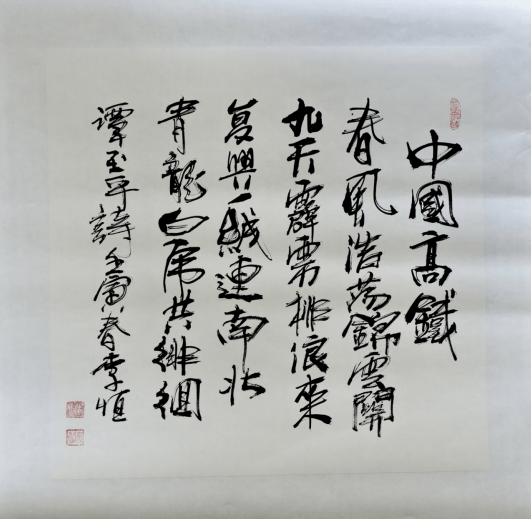 中國高鐵
春風浩蕩錦雲開
九天霹雳排浪來
复興一线連南北
青龍白虎共徘徊
譚玉平詩 春李恒